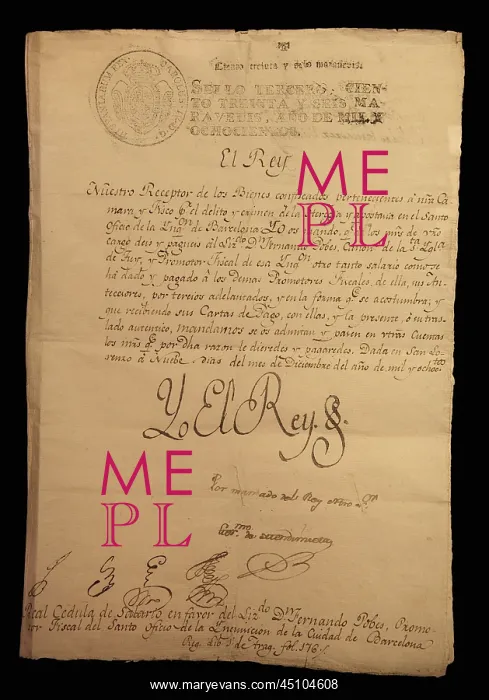 Ciento treinta y seis maravedis.
SELLO TERCERO, CIEN-
TO TREINTA Y SEIS MA-
RAVEDIS, AÑO DE MIL Y
OCHOCIENTOS.
CAROLUS
HISPANIARUM REX
El Rey
ME
PL
Nuestro Receptor de los Bienes confiscados pertenecientes â nr̃a Cá-
mara y Fisco el delito y crimen de la Heregia y apostasia en el Santo
Oficio de la Ynqon. de Barcelona YO os mando, q. de los mrs. de vr̃o
cargo deis y pagueis al Lizdo. Dn. Fernando Pobes, Canon. de la Sta. Igla.
de y Promotor-Fiscal de esa Ynqon. otro tanto salario como se
hà dado y pagado à los Demas Promotores Fiscales, de ella, sus An-
tecesores, por tercios adelantados, y en la forma qe. se acostumbra; y
que recibiendo sus Cartas de Pago, con ellas, y la presente, ò su tras-
lado autentico, mandamos se os admitan y pasen en vr̃as Cuentas
los mrs. qe. por dha razon le diereis y pagareis. Dada en San Lo-
renzo à Nuebe dias del mes de Diciembre del año de mil y ochoctos.
Yo El Rey
Por mandado del Rey ntro Sr.
ME
PL
Real Cedula de Salario en favor del Lizdo. Dn. Fernando Pobes, Promo-
tor Fiscal del Santo Oficio de la Ynquisicion de la Ciudad de Barcelona
Reg. Lib. de Arag. fol. 176
www.maryevans.com/45104608